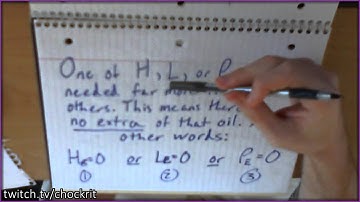 One of H, L, or P
needed far
others. This means
no extra of that oil.
other words:
HE=0 or LE=0 or PE=0
① ② ③
twitch.tv/chockrit